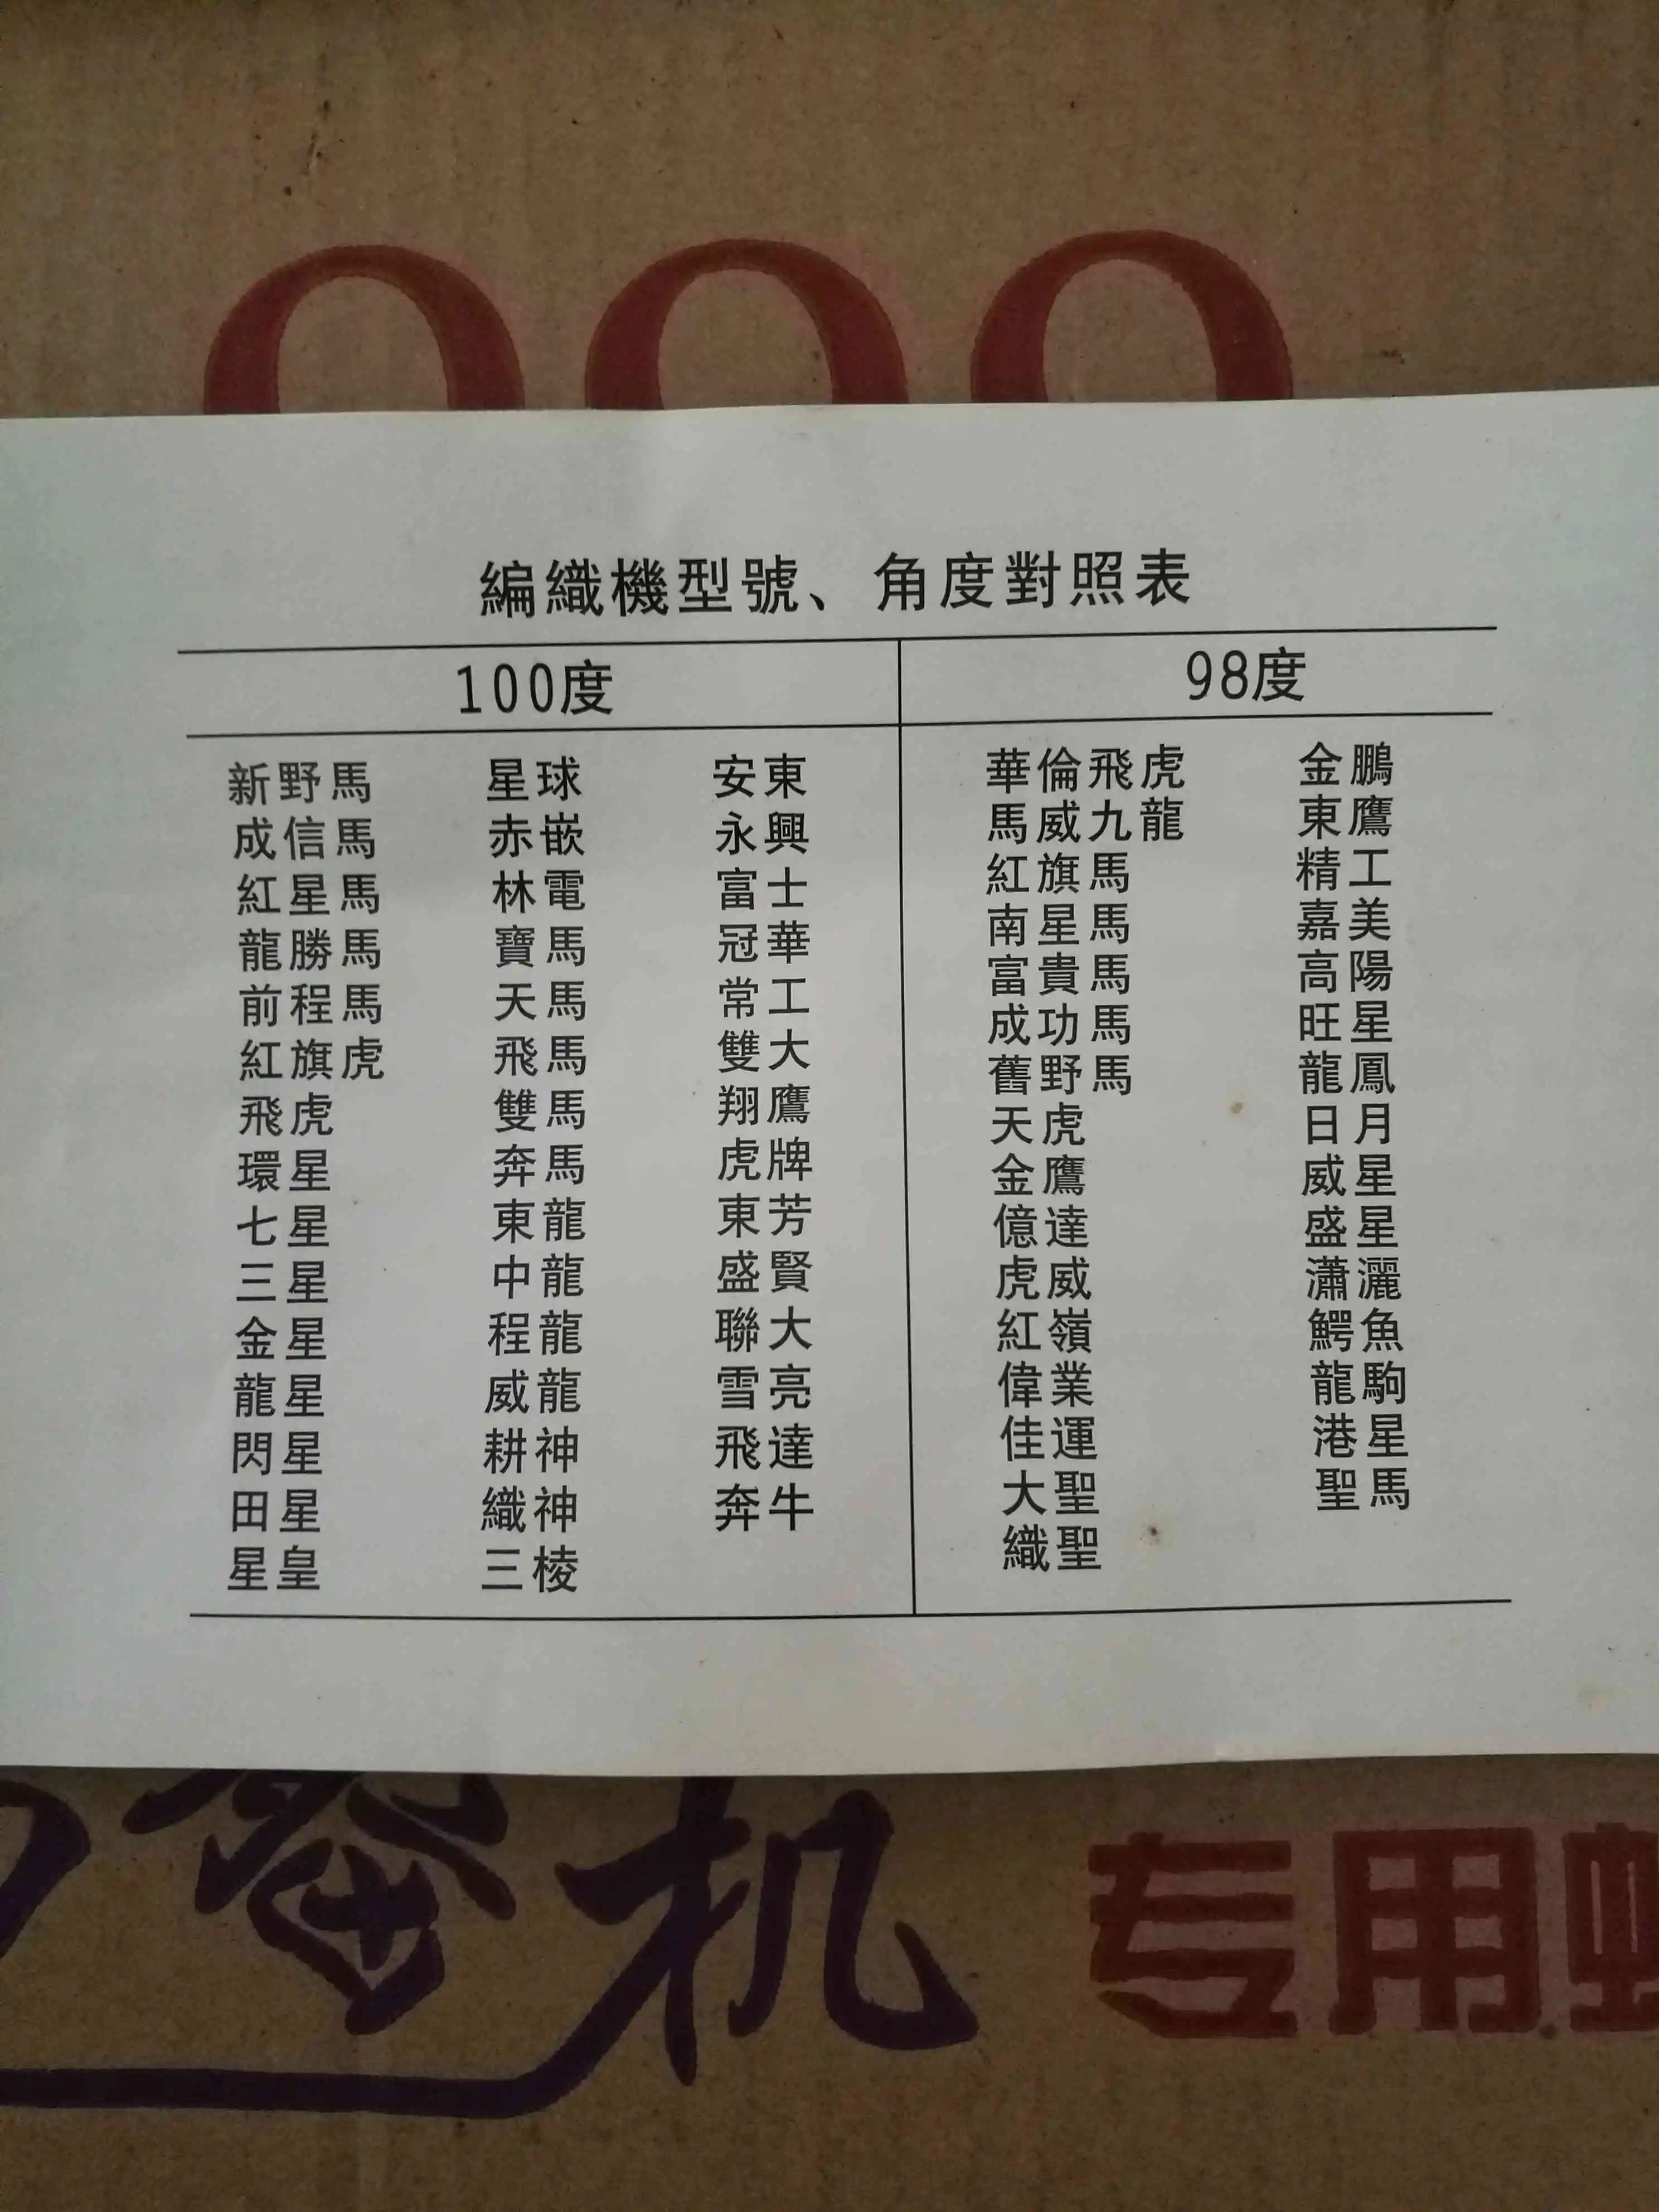 編織機型號、角度對照表
100度 98度
新野馬 星球 安東 華倫飛虎 金鵬
成信馬 赤嵌 永興 馬威九龍 東鷹
紅星馬 林電 富士 紅旗馬 精工
龍勝馬 寶馬 冠華 南星馬 嘉美
前程馬 天馬 常工 富貴馬 高陽
紅旗虎 飛馬 雙大 成功馬 旺星
飛虎 雙馬 翔鷹 舊野馬 龍鳳
環星 奔馬 虎牌 天虎 日月
七星 東龍 東芳 金鷹 威星
三星 中龍 盛賢 億達 盛星
金星 程龍 聯大 虎威 瀟灑
龍星 威龍 雪亮 紅嶺 鰐魚
閃星 耕神 飛達 偉業 龍駒
田星 織神 奔牛 佳運 港星
星皇 三棱 大聖 聖馬
織聖
机 专用